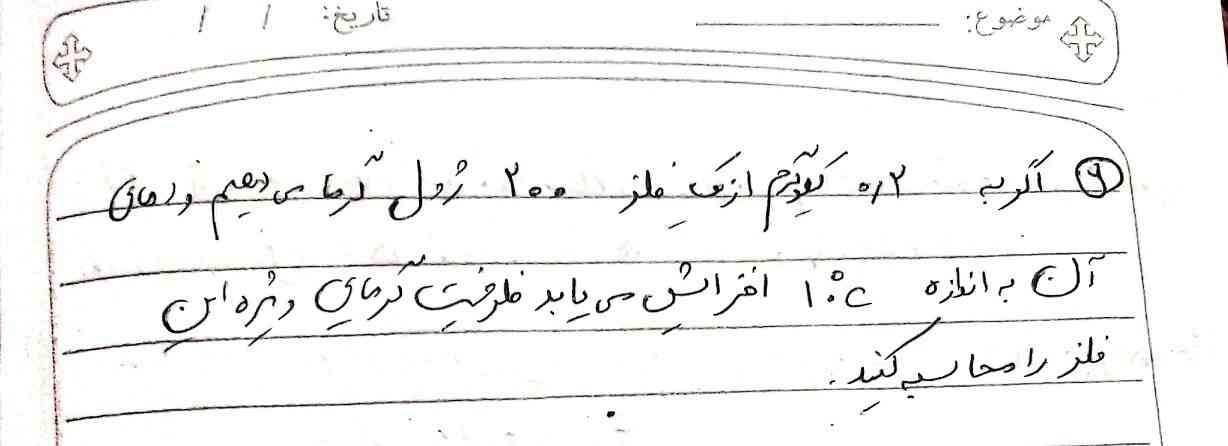 موضوع: تاریخ: / /
۶ اگر به ۰٫۲ کیلوگرم از یک فلز ۲۰۰ ژول گرما می دهیم و دمای
آن به اندازه ۱۰°c افزایش می یابد ظرفیت گرمایی ویژه این
فلز را محاسبه کنید.